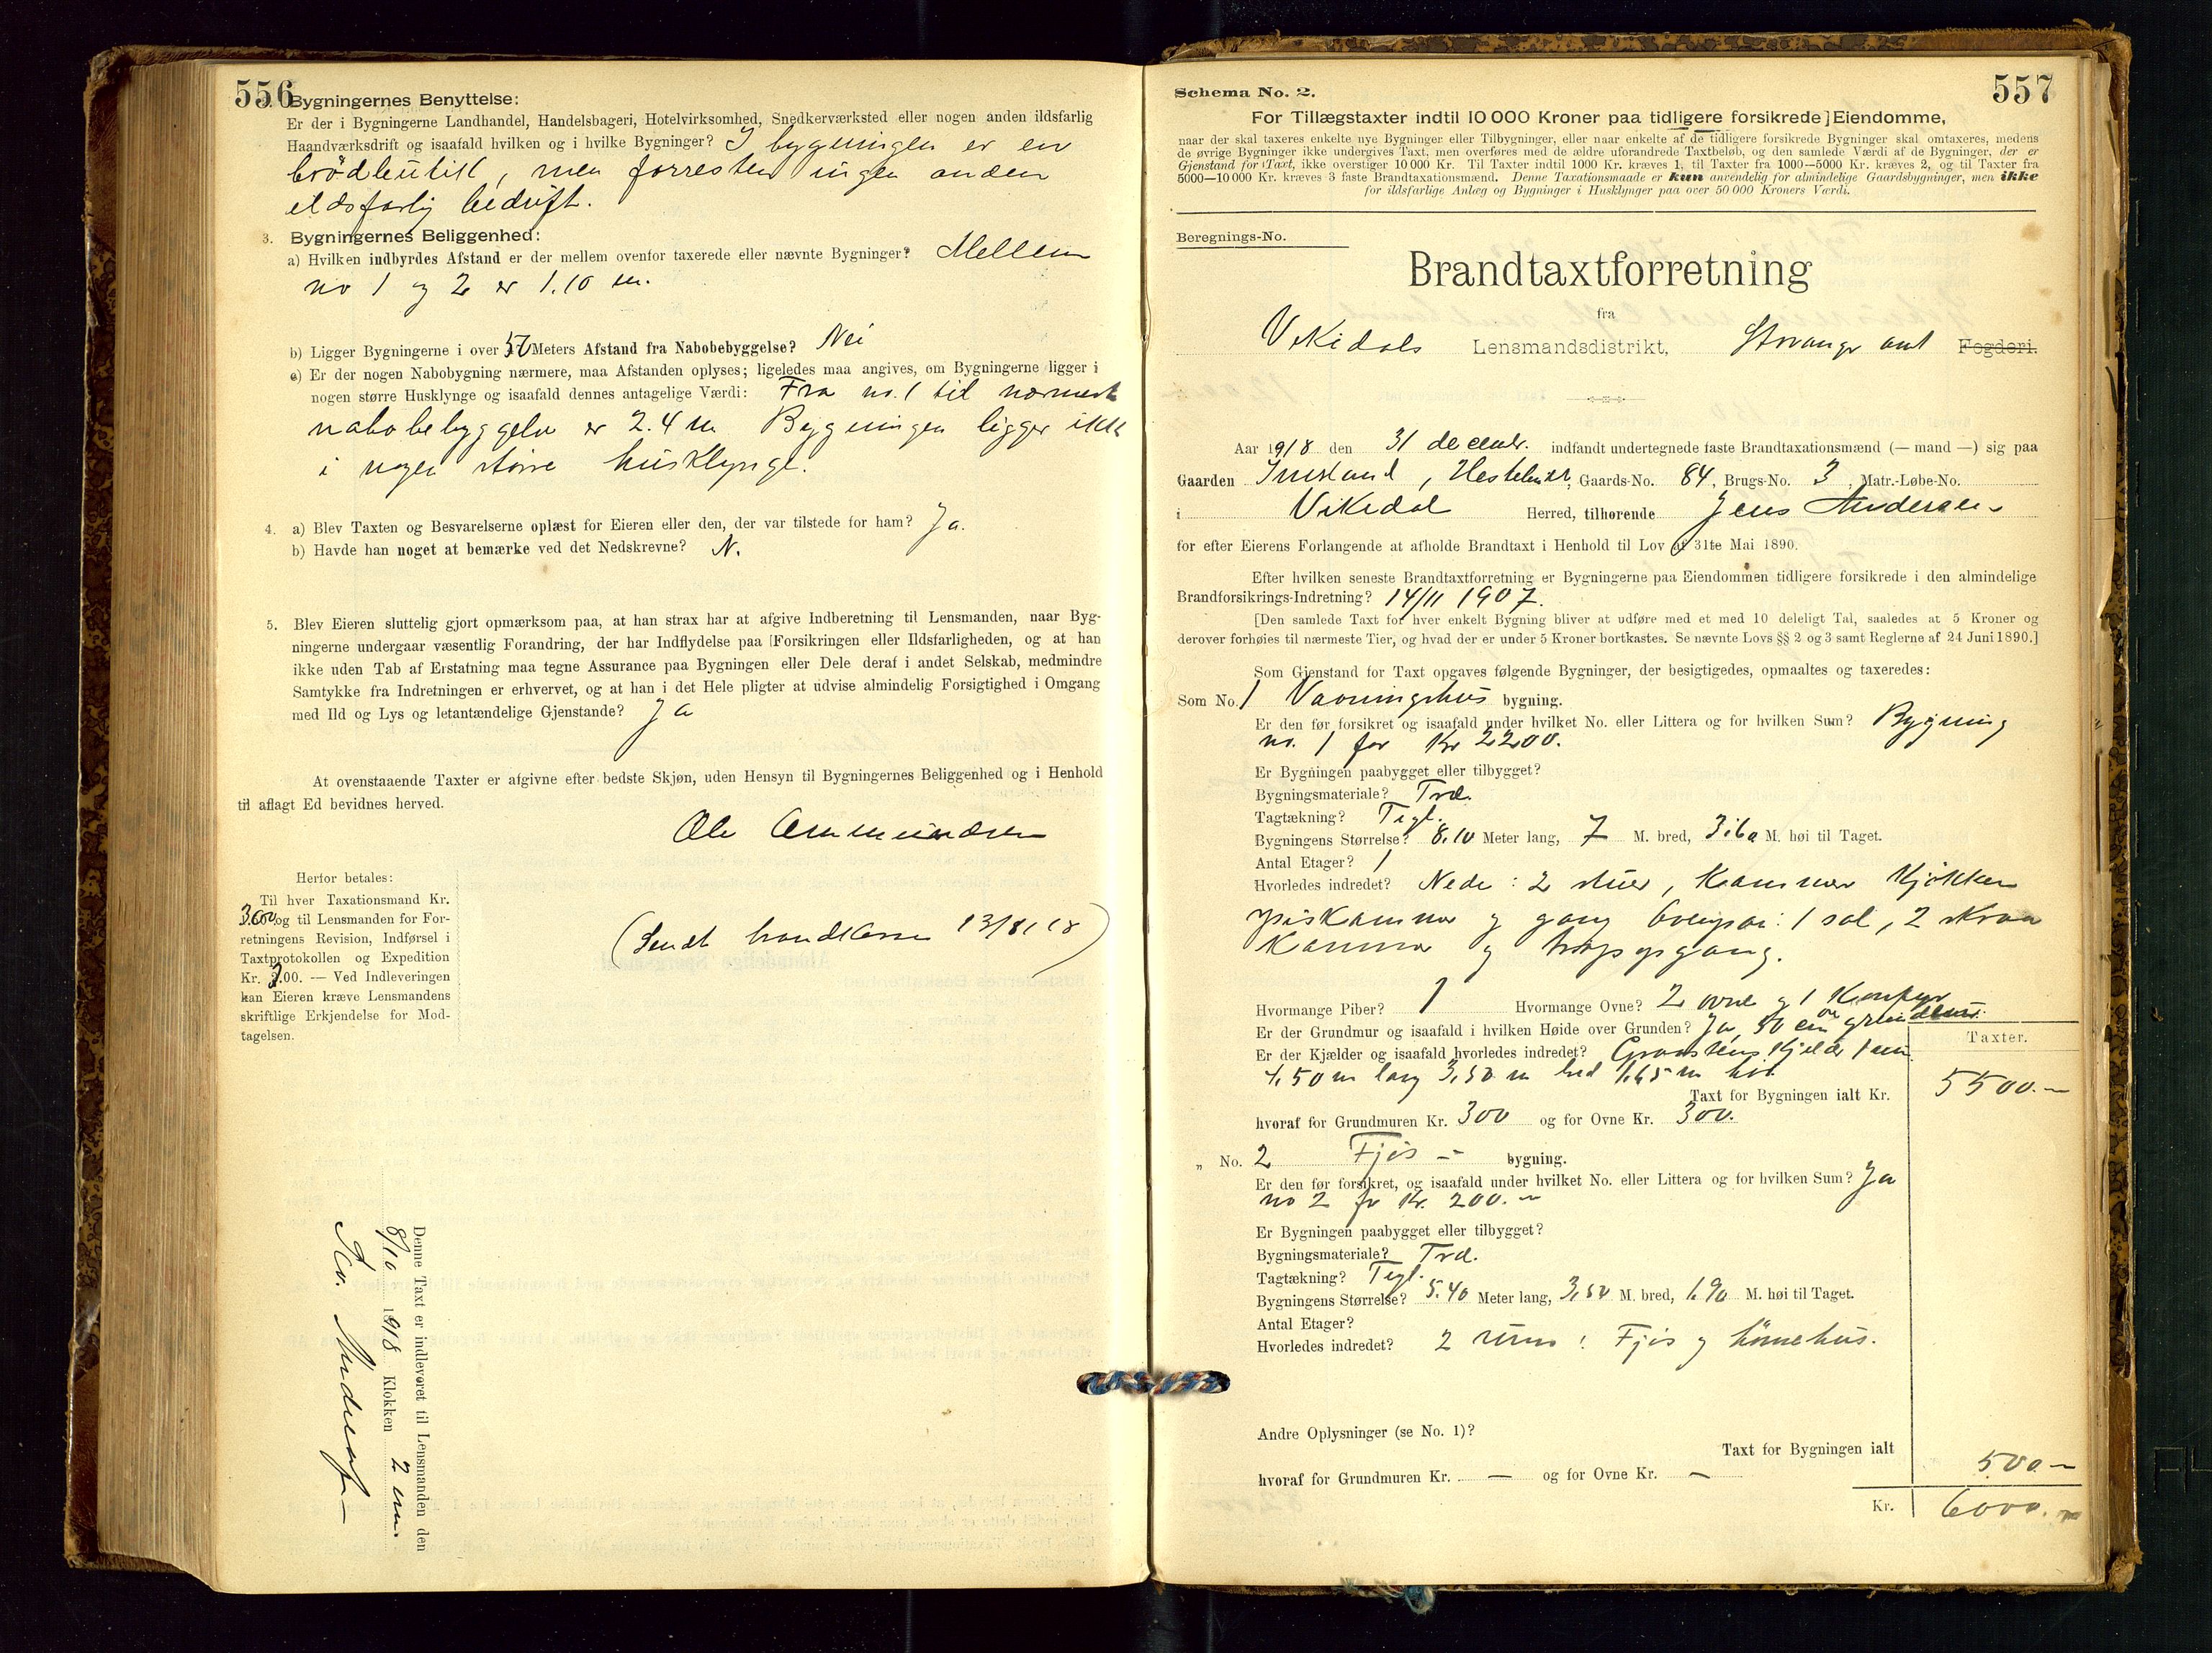 556
Bygningernes Benyttelse:
Er der i Bygningerne Landhandel, Handelsbageri, Hotelvirksomhed, Snedkerværksted eller nogen anden ildsfarlig
Haandværksdrift og isaafald hvilken og i hvilke Bygninger? I bygningen er en
brödbutik, men forresten ingen anden
eldsfarlig bedrift.
3. Bygningernes Beliggenhed:
a) Hvilken indbyrdes Afstand er der mellem ovenfor taxerede eller nævnte Bygninger? Mellem
no 1 og 2 er 1.10 m.
b) Ligger Bygningerne i over Meters Afstand fra Nabobebyggelse? Nei
c) Er der nogen Nabobygning nærmere, maa Afstanden oplyses; ligeledes maa angives, om Bygningerne ligger i
nogen større Husklynge og isaafald dennes antagelige Værdi: Fra no. 1 til nærmeste
nabobebyggelse er 2.4 m Bygningen ligger ikke
i nogen större husklynge.
4. a) Blev Taxten og Besvarelserne oplæst for Eieren eller den, der var tilstede for ham? Ja.
b) Havde han noget at bemærke ved det Nedskrevne? N.
5. Blev Eieren sluttelig gjort opmærksom paa, at han strax har at afgive Indberetning til Lensmanden, naar Byg-
ningerne undergaar væsentlig Forandring, der har Indflydelse paa Forsikringen eller Ildsfarligheden, og at han
ikke uden Tab af Erstatning maa tegne Assurance paa Bygningen eller Dele deraf i andet Selskab, medmindre
Samtykke fra Indretningen er erhvervet, og at han i det Hele pligter at udvise almindelig Forsigtighed i Omgang
med Ild og Lys og letantændelige Gjenstande? Ja
At ovenstaaende Taxter er afgivne efter bedste Skjøn, uden Hensyn til Bygningernes Beliggenhed og i Henhold
til aflagt Ed bevidnes herved.
Ole Ammundsen
Herfor betales:
Til hver Taxationsmand Kr.
3.00 og til Lensmanden for For-
retningens Revision, Indførsel i
Taxtprotokollen og Expedition
Kr. 3.00. — Ved Indleveringen
kan Eieren kræve Lensmandens
skriftlige Erkjendelse for Mod-
tagelsen.
(Sendt brandkassen 13/8, 18)
Denne Taxt er indleveret til Lensmanden den
8/10 1918 Klokken 2 em.
557
Schema No. 2.
For Tillægstaxter indtil 10 000 Kroner paa tidligere forsikrede] Eiendomme,
naar der skal taxeres enkelte nye Bygninger eller Tilbygninger, eller naar enkelte af de tidligere forsikrede Bygninger skal omtaxeres, medens
de øvrige Bygninger ikke undergives Taxt, men overføres med de ældre uforandrede Taxtbeløb, og den samlede Værdi af de Bygninger, der er
Gjenstand for Taxt, ikke overstiger 10 000 Kr. Til Taxter indtil 1000 Kr. kræves 1, til Taxter fra 1000—5000 Kr. kræves 2, og til Taxter fra
5000—10 000 Kr. kræves 3 faste Brandtaxationsmænd. Denne Taxationsmaade er kun anvendelig for almindelige Gaardsbygninger, men ikke
for ildsfarlige Anlæg og Bygninger i Husklynger paa over 50 000 Kroners Værdi.
Beregnings-No.
Brandtaxtforretning
fra
Vikedals Lensmandsdistrikt, Stavanger amt Fogderi.
Aar 1918 den 31 decembr. indfandt undertegnede faste Brandtaxationsmænd (— mand —) sig paa
Gaarden , Gaards-No. 84, Brugs-No. 3, Matr.-Løbe-No.
i Vikedal Herred, tilhørende Jens Andersen
for efter Eierens Forlangende at afholde Brandtaxt i Henhold til Lov af 31te Mai 1890.
Efter hvilken seneste Brandtaxtforretning er Bygningerne paa Eiendommen tidligere forsikrede i den almindelige
Brandforsikrings-Indretning? 14/11 1907.
[Den samlede Taxt for hver enkelt Bygning bliver at udføre med et med 10 deleligt Tal, saaledes at 5 Kroner og
derover forhøies til nærmeste Tier, og hvad der er under 5 Kroner bortkastes. Se nævnte Lovs §§ 2 og 3 samt Reglerne af 24 Juni 1890.]
Som Gjenstand for Taxt opgaves følgende Bygninger, der besigtigedes, opmaaltes og taxeredes:
Som No. 1 Vaaningshus bygning.
Er den før forsikret og isaafald under hvilket No. eller Littera og for hvilken Sum? Bygning
no. 1 for Kr 2200.
Er Bygningen paabygget eller tilbygget?
Bygningsmateriale? Træ.
Tagtækning? Tegl.
Bygningens Størrelse? 8.10 Meter lang, 7 M. bred, 3.60 M. høi til Taget.
Antal Etager? 1
Hvorledes indredet? Nede: 2 stuer, Kammer Kjøkken
spiskammer og gang Ovenpaa: 1 sal, 2 skraa
Kammer og trapopgang.
Hvormange Piber? 1 Hvormange Ovne? 2 ovne og 1 Komfyr
Er der Grundmur og isaafald i hvilken Høide over Grunden? Ja, 50 cm over grunden.
Er der Kjælder og isaafald hvorledes indredet? Graastens Kjelder 1 rum
4.50 m lang 3,50 m bred 1.65 m høi
Taxter.
Taxt for Bygningen ialt Kr. 5500.—
hvoraf for Grundmuren Kr. 300 og for Ovne Kr. 300.
„ No. 2 Fjøs — bygning.
Er den før forsikret, og isaafald under hvilket No. eller Littera og for hvilken Sum? Ja
no 2 for Kr. 200.—
Er Bygningen paabygget eller tilbygget?
Bygningsmateriale? Træ.
Tagtækning? Tegl.
Bygningens Størrelse? 5.40 Meter lang, 3,50 M. bred, 1.90 M. høi til Taget.
Antal Etager?
Hvorledes indredet? 2 rum: Fjøs og hönsehus.
Andre Oplysninger (se No. 1)?
Taxt for Bygningen ialt 500.—
hvoraf for Grundmuren Kr. — og for Ovne Kr. —
Kr. 6000.—